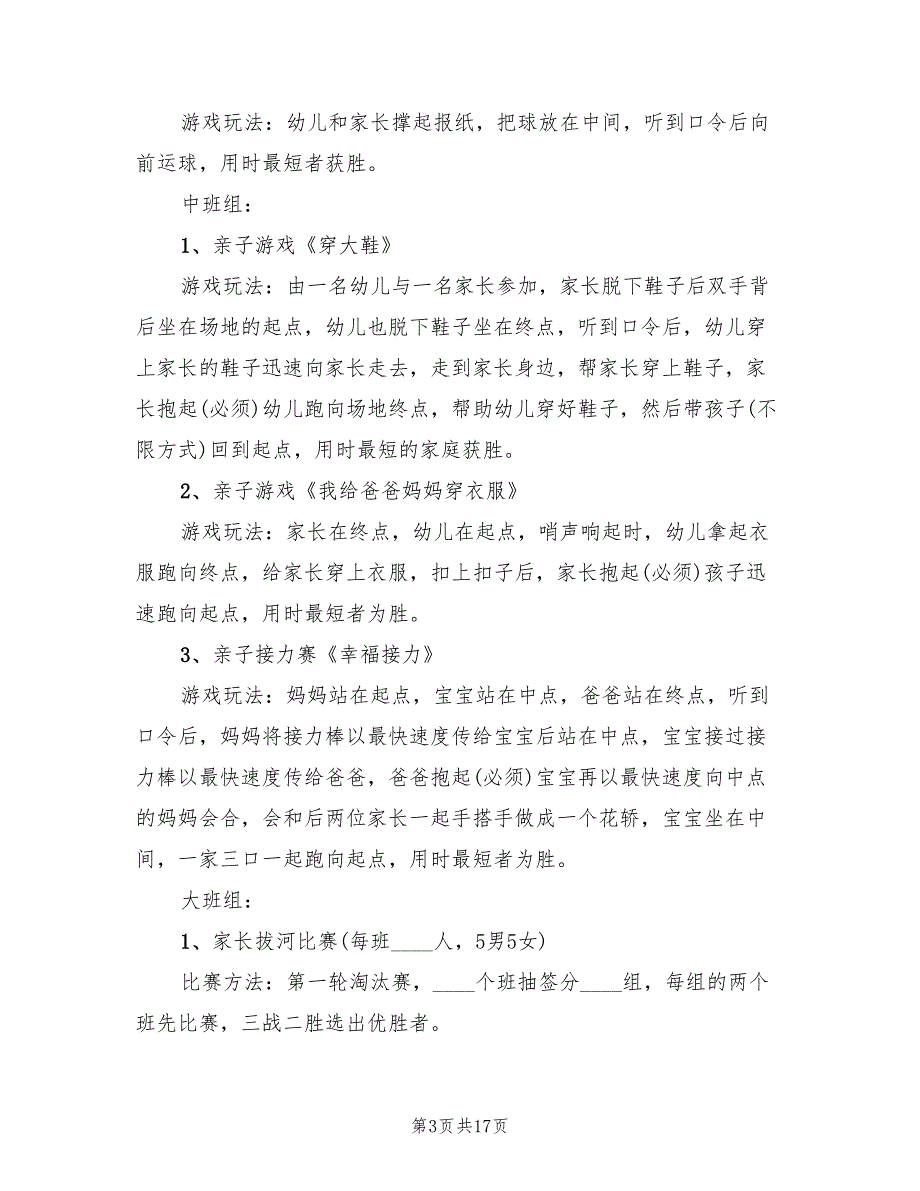 游戏玩法：幼儿和家长撑起报纸，把球放在中间，听到口令后向
前运球，用时最短者获胜。
中班组：
1、亲子游戏《穿大鞋》
游戏玩法：由一名幼儿与一名家长参加，家长脱下鞋子后双手背
后坐在场地的起点，幼儿也脱下鞋子坐在终点，听到口令后，幼儿穿
上家长的鞋子迅速向家长走去，走到家长身边，帮家长穿上鞋子，家
长抱起(必须)幼儿跑向场地终点，帮助幼儿穿好鞋子，然后带孩子(不
限方式)回到起点，用时最短的家庭获胜。
2、亲子游戏《我给爸爸妈妈穿衣服》
游戏玩法：家长在终点，幼儿在起点，哨声响起时，幼儿拿起衣
服跑向终点，给家长穿上衣服，扣上扣子后，家长抱起(必须)孩子迅
速跑向起点，用时最短者为胜。
3、亲子接力赛《幸福接力》
游戏玩法：妈妈站在起点，宝宝站在中点，爸爸站在终点，听到
口令后，妈妈将接力棒以最快速度传给宝宝后站在中点，宝宝接过接
力棒以最快速度传给爸爸，爸爸抱起(必须)宝宝再以最快速度向中点
的妈妈会合，会和后两位家长一起手搭手做成一个花轿，宝宝坐在中
间，一家三口一起跑向起点，用时最短者为胜。
大班组：
1、家长拔河比赛(每班____人，5男5女)
比赛方法：第一轮淘汰赛，____个班抽签分____组，每组的两个
班先比赛，三战二胜选出优胜者。
第3页共17页